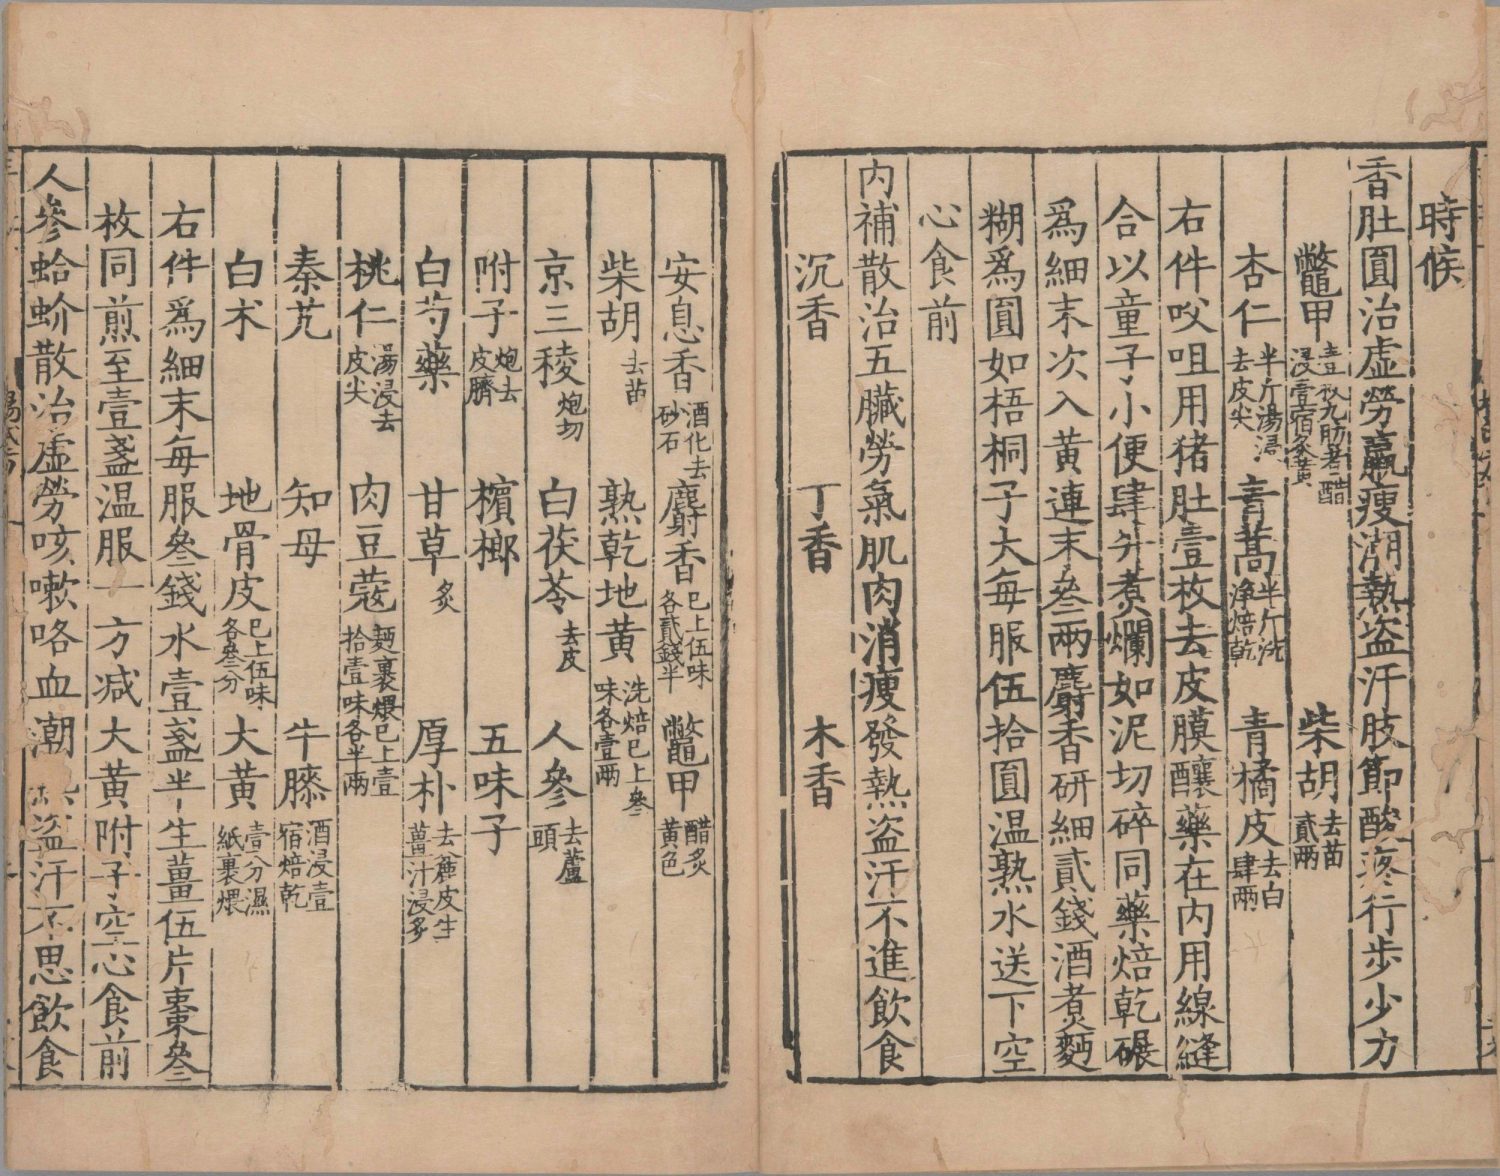 時候
香肚圓治虛勞羸瘦潮熱盗汗肢節酸疼行歩少力
鱉甲壹枚九肋者醋浸壹宿炙黄 柴胡去苗貳兩
杏仁半斤湯浸去皮尖 青蒿半斤洗淨焙乾 青橘皮去白肆兩
右件㕮咀用猪肚壹枚去皮膜釀藥在内用線縫
合以童子小便肆升煮爛如泥切碎同藥焙乾碾
爲細末次入黄連末叁兩麝香研細貳錢酒煮麪
糊爲圓如梧桐子大每服伍拾圓温熟水送下空
心食前
内補散治五臟勞氣肌肉消瘦發熱盗汗不進飲食
沉香 丁香 木香
安息香酒化去砂石 麝香已上伍味各貳錢半 鱉甲醋炙黄色
柴胡去苗 熟乾地黄洗焙已上叁味各壹兩
京三稜炮切 白茯苓去皮 人參去蘆頭
附子炮去皮臍 檳榔 五味子
白芍藥 甘草炙 厚朴去麄皮生薑汁浸炙
桃仁湯浸去皮尖 肉豆蔻麪裹煨已上壹拾壹味各半兩
秦艽 知母 牛膝酒浸壹宿焙乾
白朮 地骨皮已上伍味各叁分 大黄壹分濕紙裹煨
右件爲細末每服叁錢水壹盞半生薑伍片棗叁
枚同煎至壹盞温服一方减大黄附子空心食前
人參蛤蚧散治虛勞咳嗽咯血潮熱盗汗不思飲食